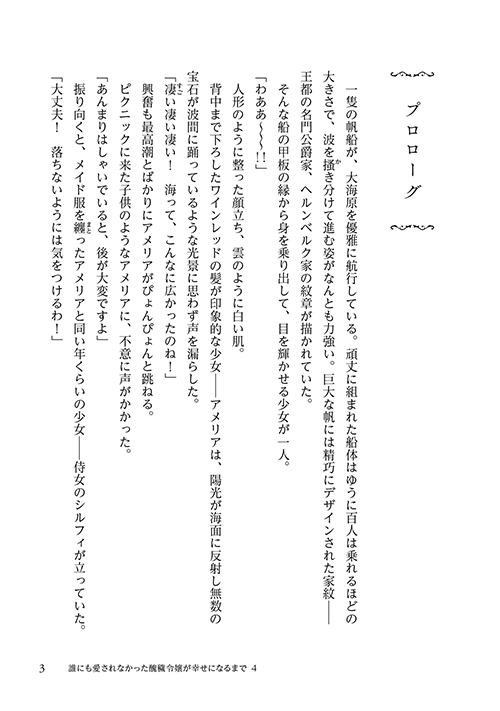 プロローグ
一隻の帆船が、大海原を優雅に航行している。頑丈に組まれた船体はゆうに百人は乗れるほどの
大きさで、波を掻き分けて進む姿がなんとも力強い。巨大な帆には精巧にデザインされた家紋――
王都の名門公爵家、ヘルンベルク家の紋章が描かれていた。
そんな船の甲板の縁から身を乗り出して、目を輝かせる少女が一人。
「わああ～～～!!」
人形のように整った顔立ち、雲のように白い肌。
背中まで下ろしたワインレッドの髪が印象的な少女――アメリアは、陽光が海面に反射し無数の
宝石が波間に踊っているような光景に思わず声を漏らした。
「凄い凄い凄い！　海って、こんなに広かったのね！」
興奮も最高潮とばかりにアメリアがぴょんぴょんと跳ねる。
ピクニックに来た子供のようなアメリアに、不意に声がかかった。
「あんまりはしゃいでいると、後が大変ですよ」
振り向くと、メイド服を纏ったアメリアと同い年くらいの少女――侍女のシルフィが立っていた。
「大丈夫！　落ちないようには気をつけるわ！」
3　誰にも愛されなかった醜穢令嬢が幸せになるまで 4